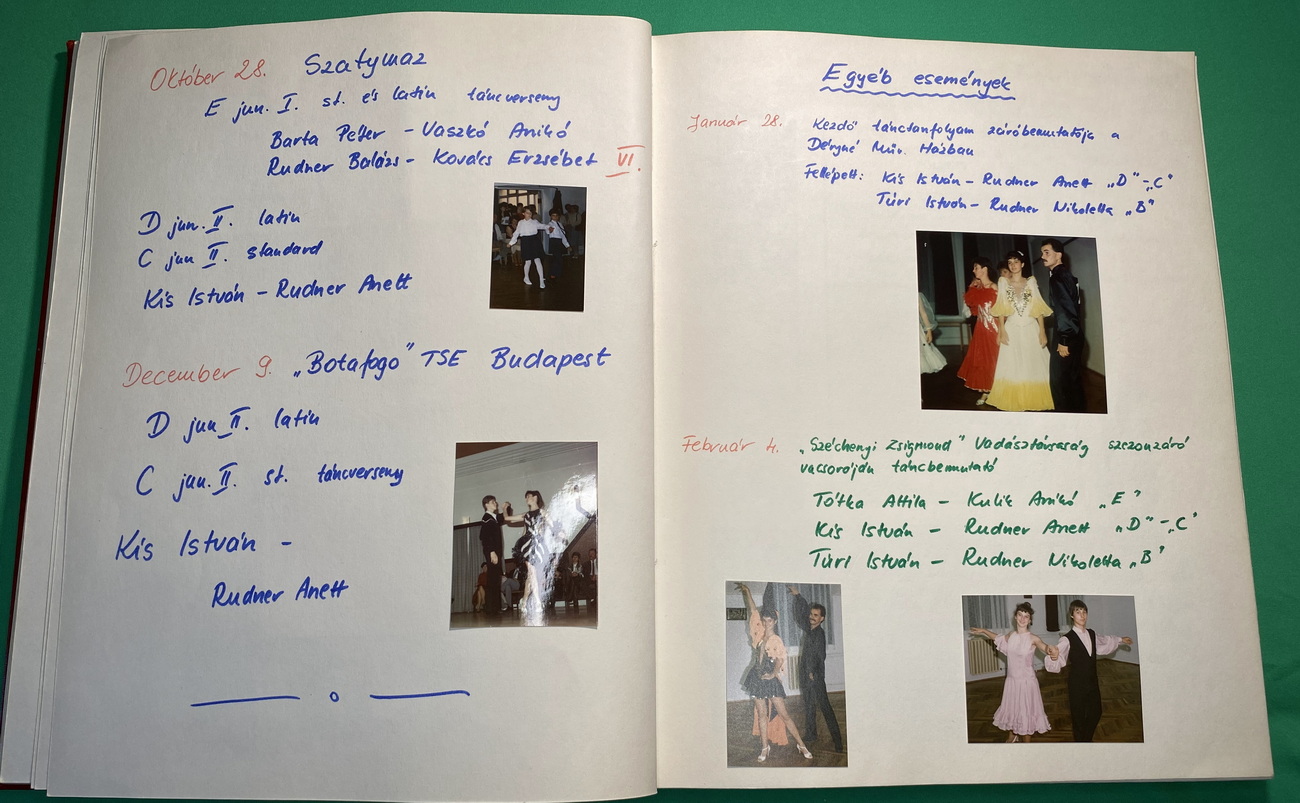 Október 28. Szatymaz
E jun. I. st. és latin táncverseny
Barta Péter - Vaszkó Anikó
Rudner Balázs - Kovács Erzsébet VI.
D jun. II. latin
C jun II. standard
Kis István - Rudner Anett
December 9. „Botafogo" TSE Budapest
D jun. II. latin
C jun. II. st. táncverseny
Kis István -
Rudner Anett
Egyéb események
Január 28. Kezdő tánctanfolyam záróbemutatója a
Déryné Műv. Házban
Fellépett: Kis István - Rudner Anett „D"-„C"
Túri István - Rudner Nikoletta „B"
Február 4. „Széchenyi Zsigmond" Vadásztársaság szezonzáró
vacsoráján táncbemutató
Tótka Attila - Kulik Anikó „E"
Kis István - Rudner Anett „D"-„C"
Túri István - Rudner Nikoletta „B"